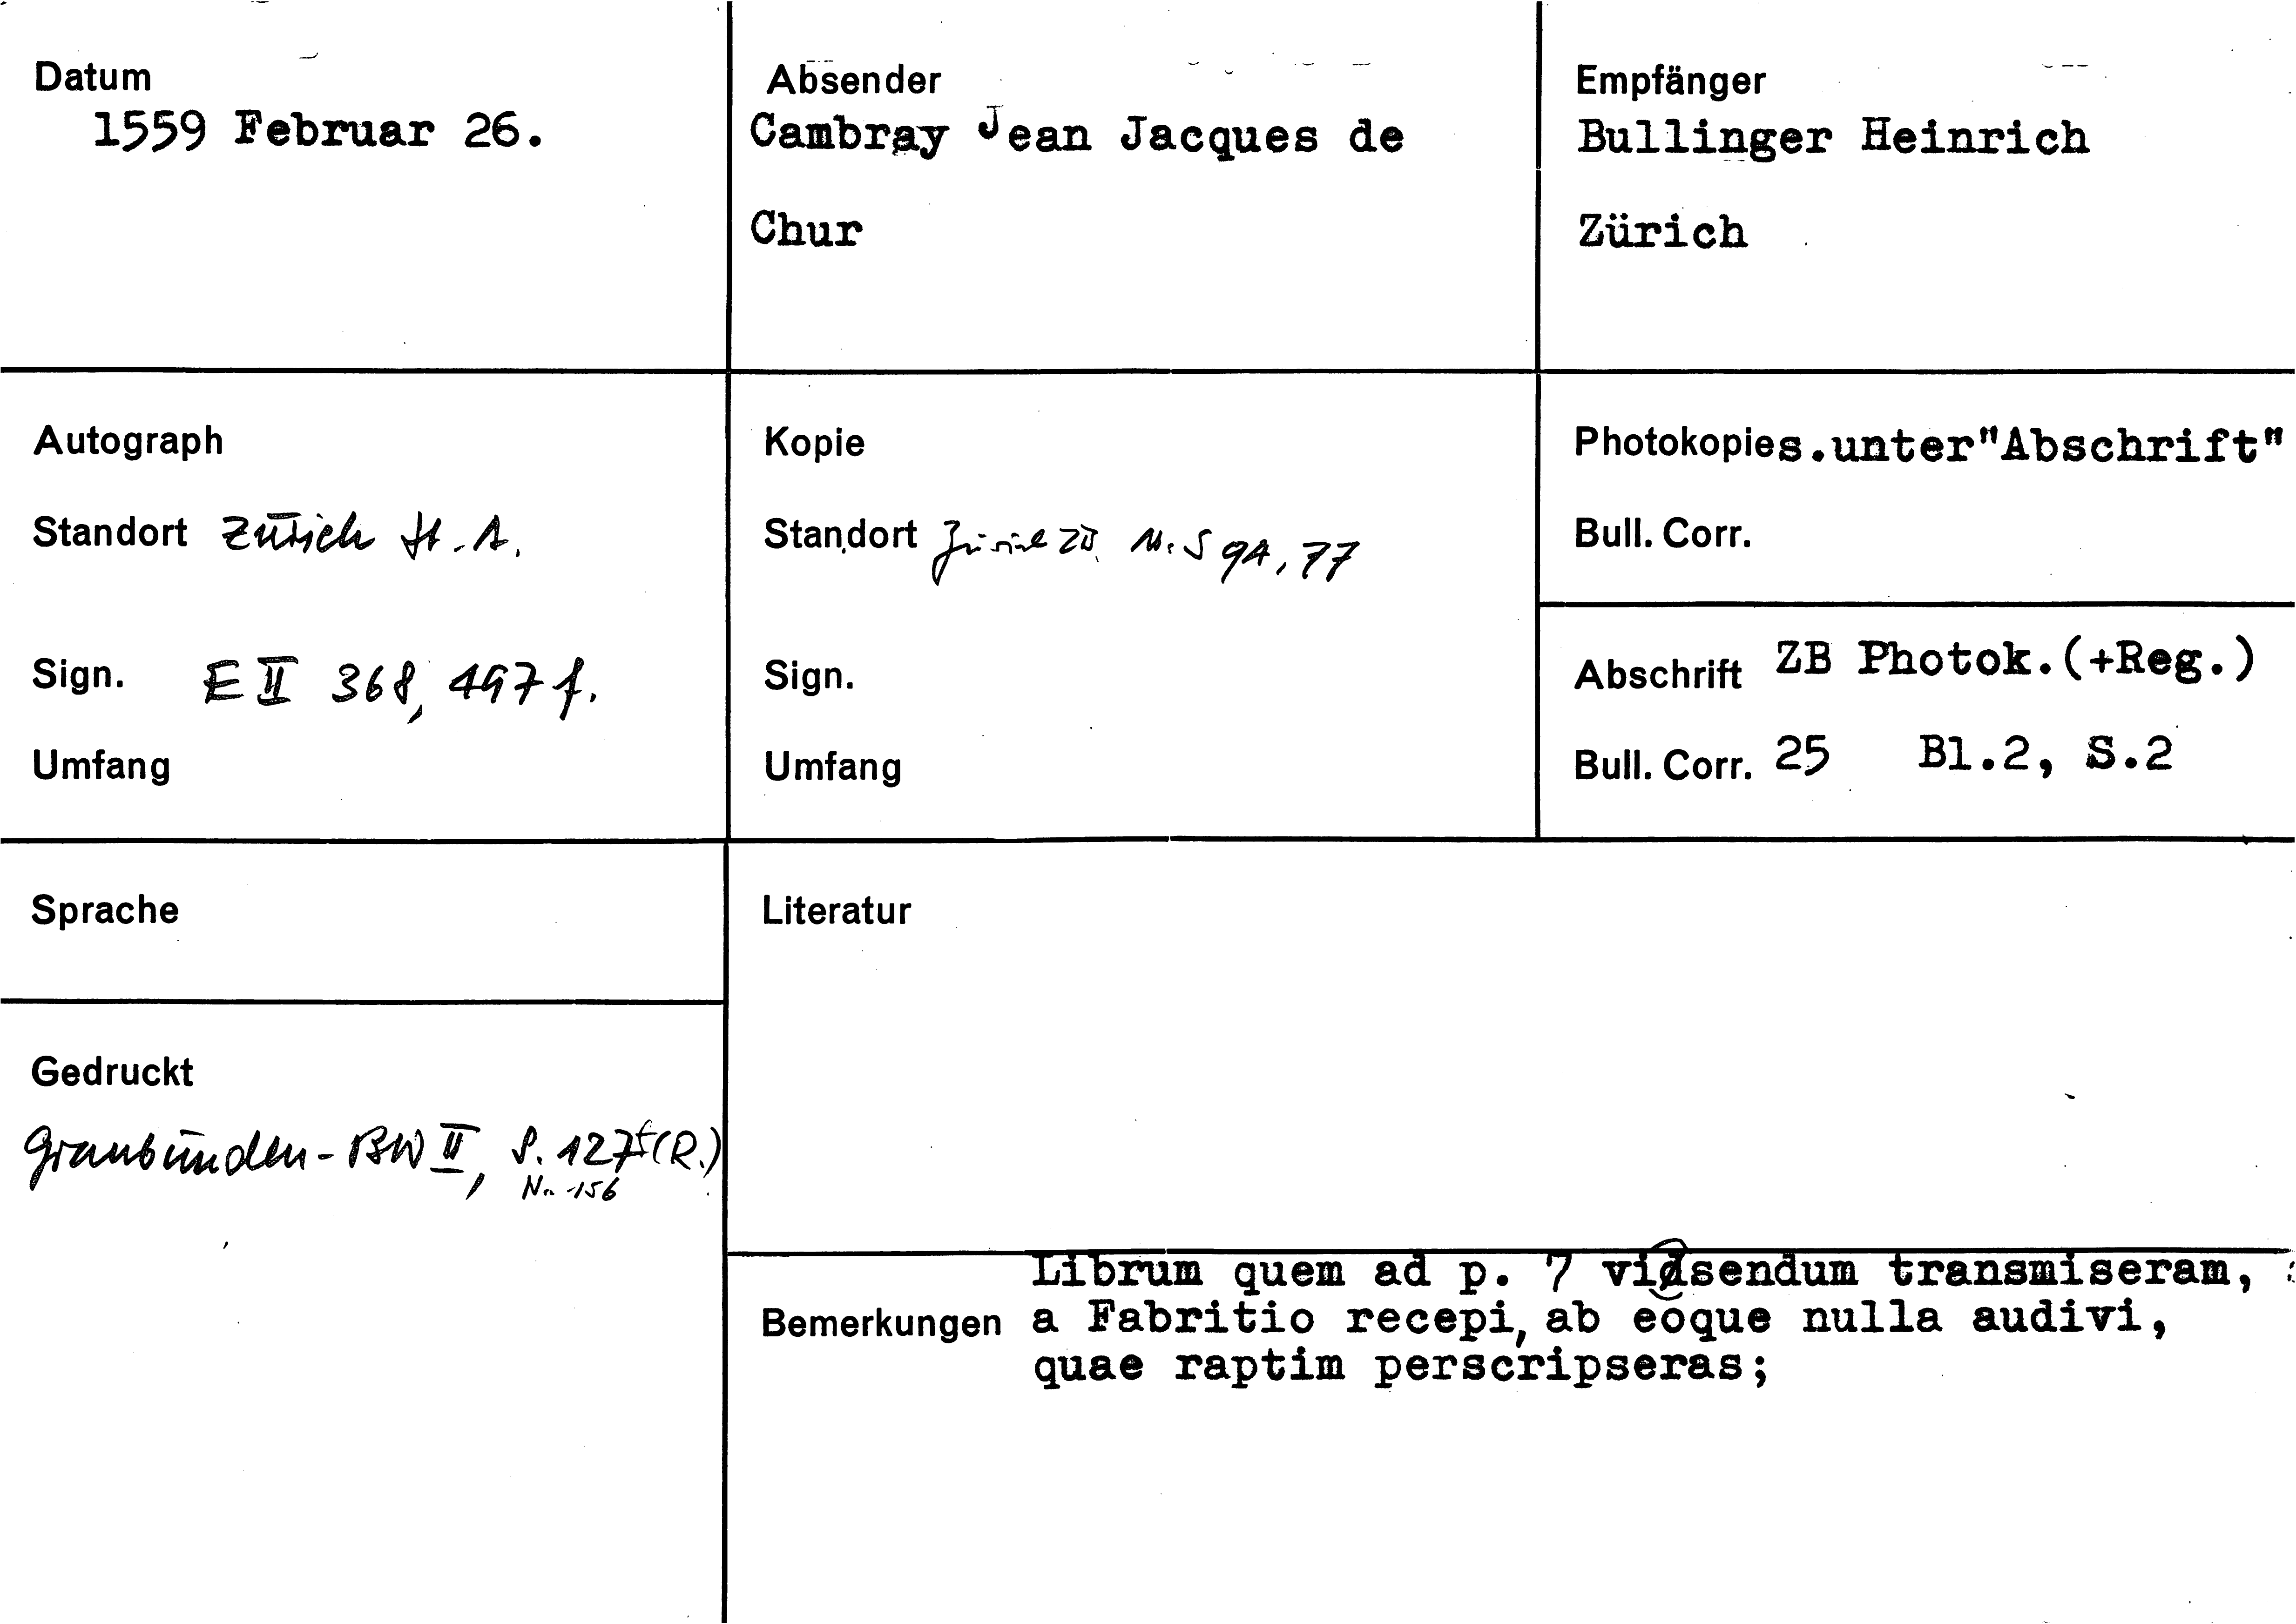 Datum
1559 Februar 26.
Absender
Cambray Jean Jacques de
Chur
Empfänger
Bullinger Heinrich
Zürich
Autograph
Standort Zürich St. A.
Sign. E II 368, 497 f.
Umfang
Kopie
Standort Zürich ZB Ms S 94, 77
Sign.
Umfang
Photokopie s.unter"Abschrift"
Bull. Corr.
Abschrift ZB Photok.(+Reg.)
Bull. Corr. 25 Bl.2, S.2
Sprache
Literatur
Gedruckt
Graubünden-BW II, S. 127 (R.)
Nr. 156
Bemerkungen
Librum quem ad p. 7 visendum transmiseram,
a Fabritio recepi, ab eoque nulla audivi,
quae raptim perscripseras;